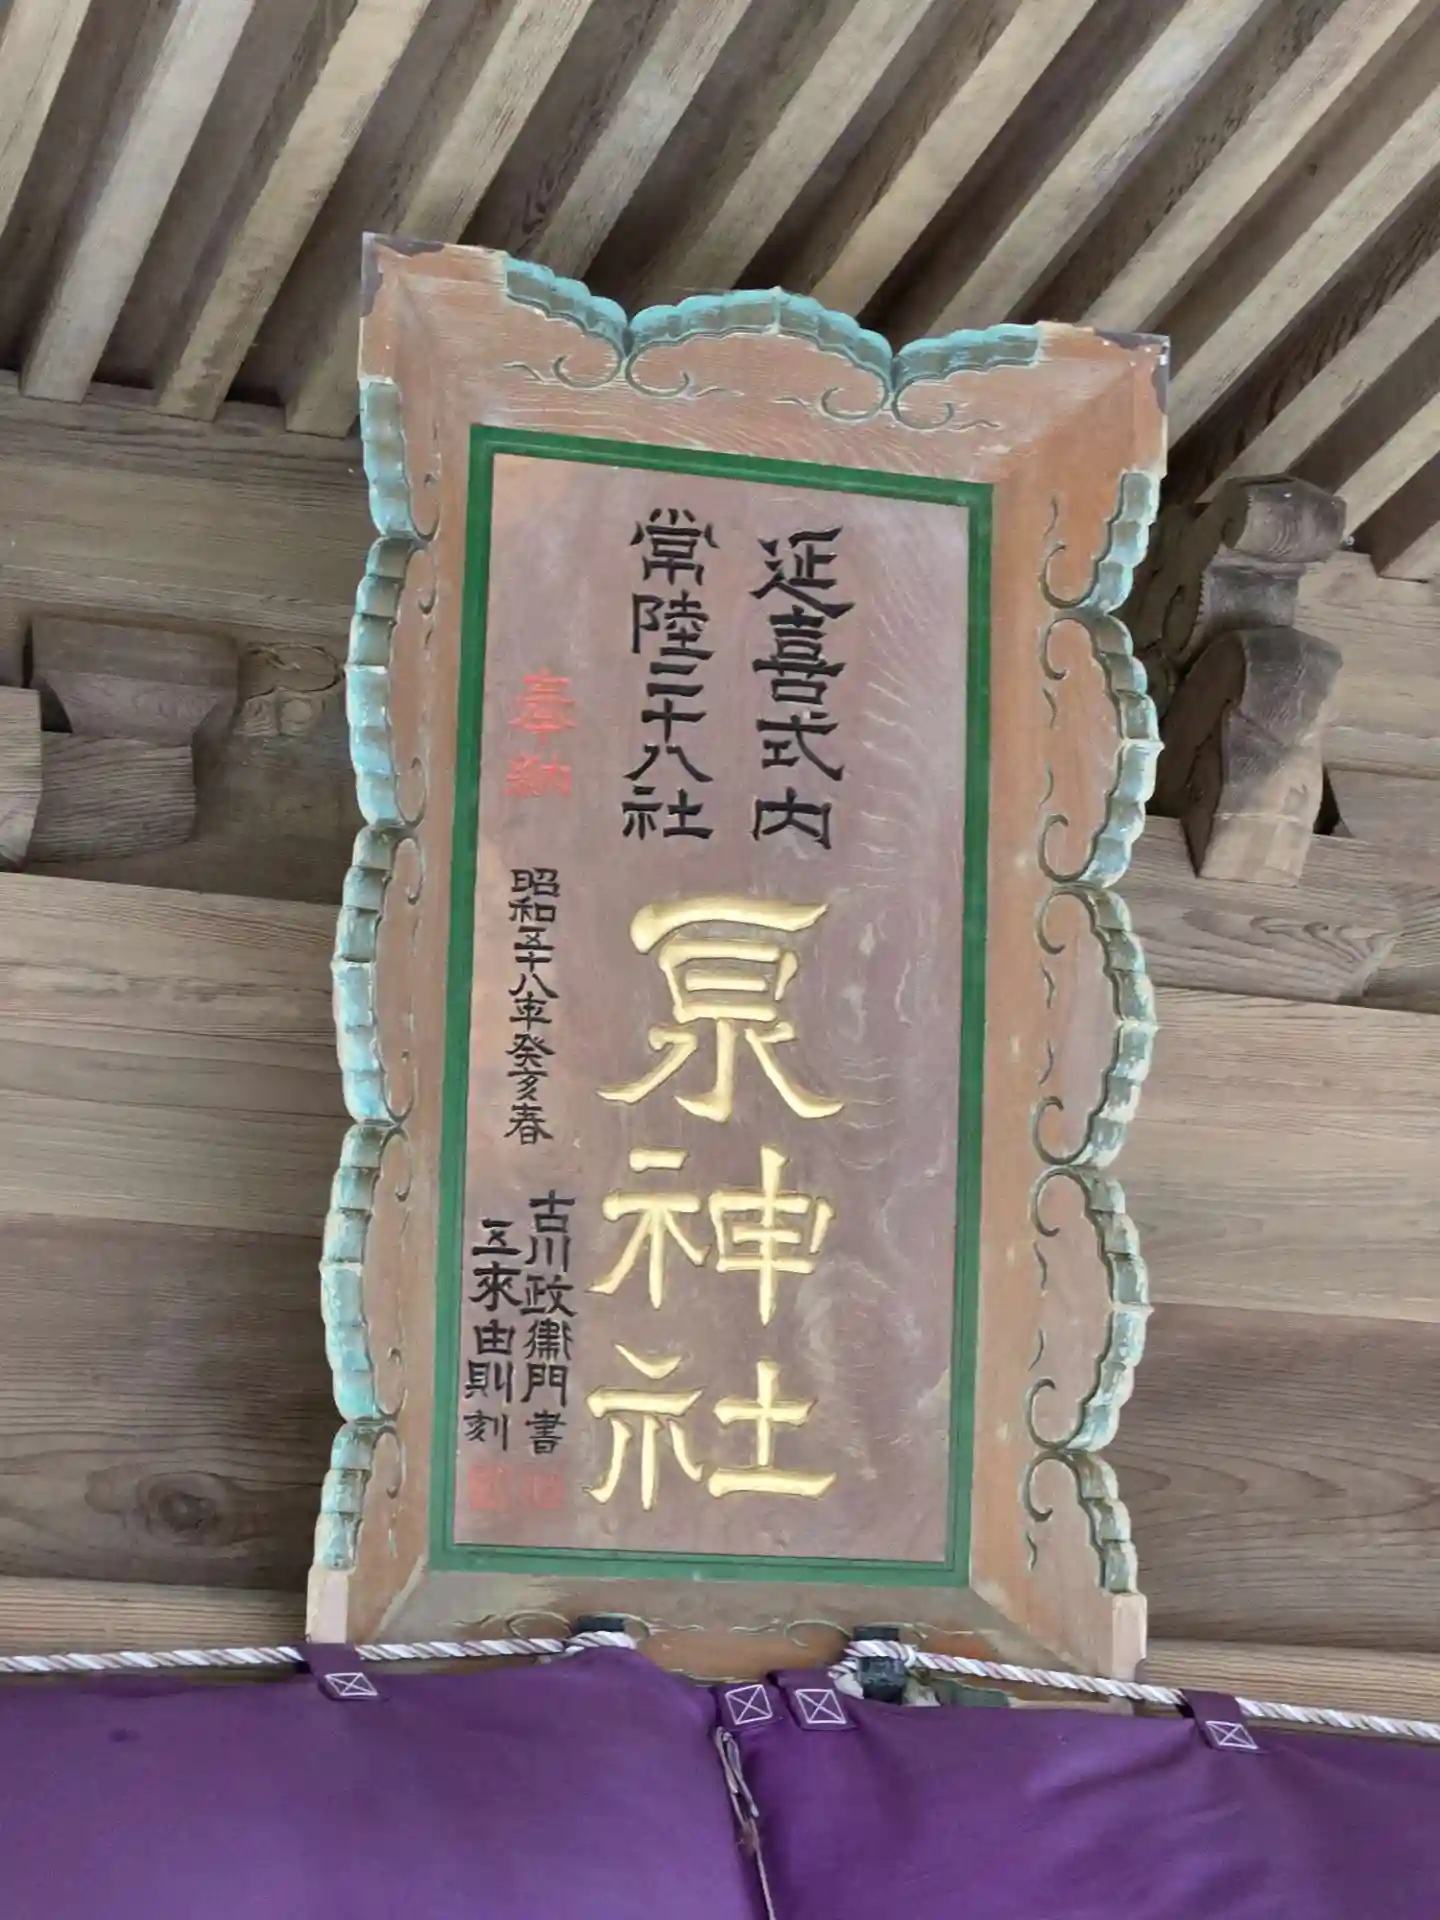 延喜式内
常陸二十八社
泉神社
奉納
昭和五十八年癸亥春
古川政衛門書
五來由則刻